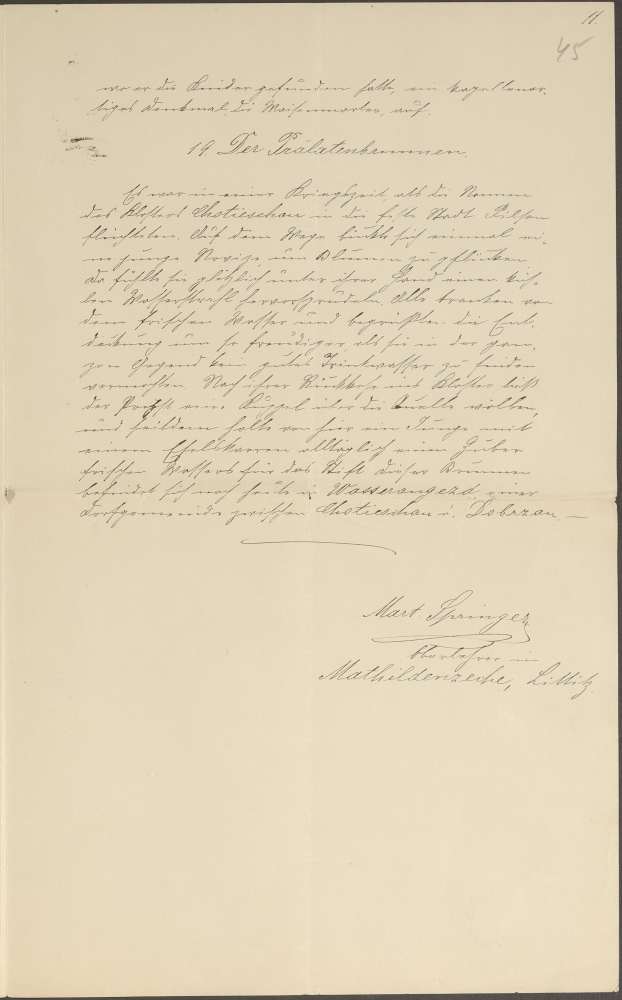 11.
45
wo er die Kinder gefunden hatte, ein kapellenar-
tiges Denkmal, die Maisenmarter, auf.
19 Der Prälatenbrunnen.
Es war in einer Kriegszeit, als die Nonnen
des Klosters Chotieschau in die feste Stadt Pilsen
flüchteten. Auf dem Wege bückte sich einmal ei-
ne junge Novize, um Blumen zu pflücken
da fühlte sie plötzlich unter ihrer Hand einen küh-
len Wasserstrahl hervorsprudeln. Alle tranken von
dem frischen Wasser und begrüßten die Ent-
deckung um so freudiger als sie in der gan-
zen Gegend kein gutes Trinkwasser zu finden
vermochten. Nach ihrer Rückkehr ins Kloster ließ
der Propst eine Kuppel über die Quelle wölben,
und seitdem holte von hier ein Junge mit
einem Eselskarren alltäglich einen Zuber
frischen Wassers für das Stift. Dieser Brunnen
befindet sich noch heute in Wasserangezd, einer
Dorfgemeinde zwischen Chotieschau u. Dobrzan. —
Mart. Springer
Oberlehrer in
Mathildenzeche, Littitz.